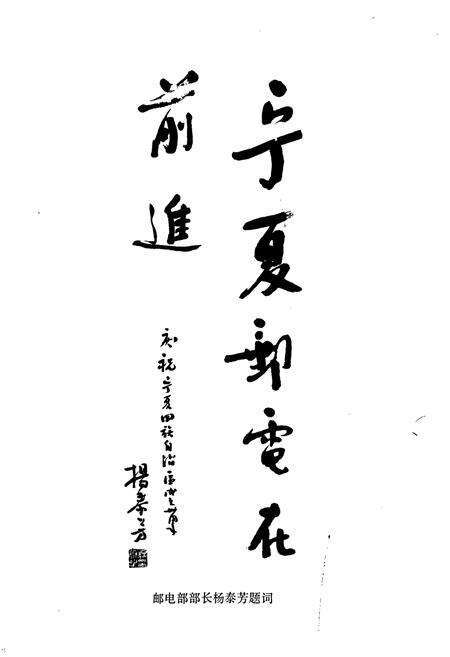 宁夏郵電在
前進
庆祝宁夏回族自治区成立卅年
楊泰芳
邮电部部长杨泰芳题词